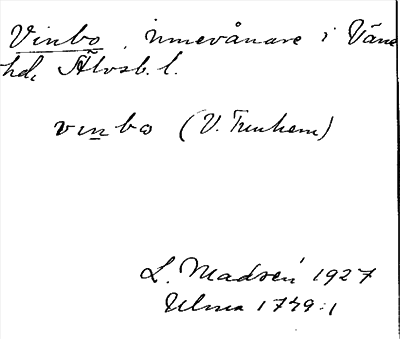 Vinbo, innevånare i Väne
hd, Älvsb. l.
vinbo (V. Tunhem)
L. Madsén 1927
Ulma 1779:1